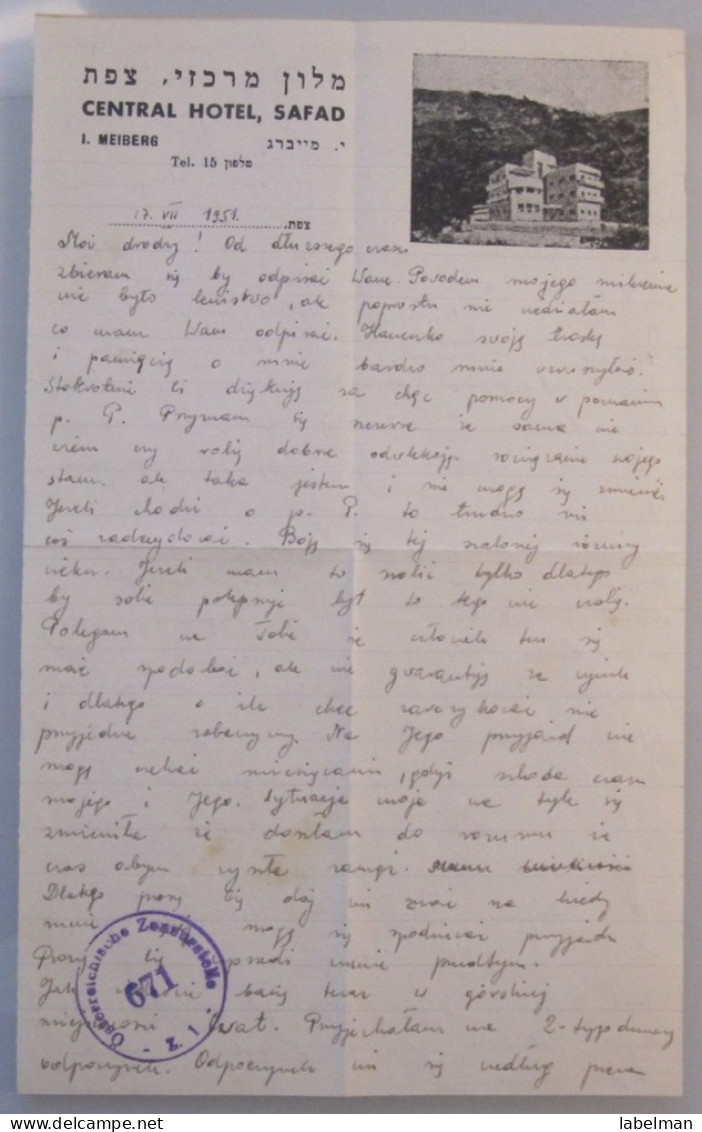 מלון מרכזי, צפת
CENTRAL HOTEL, SAFAD
I. MEIBERG י. מייברג
Tel. 15 טלפון
17 VII 1951. צפת,
Moi drodzy! Od dłuższego czasu
zbieram się by odpisać Wam. Powodem mojego milczenia
nie było lenistwo, ale poprostu nie wiedziałam
co mam Wam odpisać. swoją troską
i pamięcią o mnie bardzo mnie wzruszyłaś.
Stokrotnie Ci dziękuję za chęć pomocy w poznaniu
p. P. Przyznam się szczerze że sama nie
wiem czy robię dobrze odwlekając rozwiązanie mojego
stanu, ale taka jestem i nie mogę się zmienić.
Jeżeli chodzi o p. P. to trudno mi
coś zadecydować. Boję się tej szalonej różnicy
wieku. Jeżeli mam to zrobić tylko dlatego
by sobie polepszyć byt to tego nie zrobię.
Polegam na Tobie że człowiek ten się
może spodobać, ale nie gwarantuję za wynik
i dlatego o ile chce zaryzykować niech
przyjedzie zobaczymy. Na Jego przyjazd nie
mogę czekać miesiącami, gdyż szkoda czasu
mojego i Jego. Sytuacja moja na tyle się
zmieniła że doszłam do rozumu że
czas abym wyszła zamąż.
Dlatego proszę Cię daj mi znać na kiedy
mogę się spodziewać przyjazdu
Proszę Cię uprzedź mnie przedtym.
Jak widzisz bawię teraz w górskiej
miejscowości Cwat. Przyjechałam na 2-tygodniowy
odpoczynek. Odpoczynek mi się według prawa
Österreichische Zensurstelle
671
Z. 1.